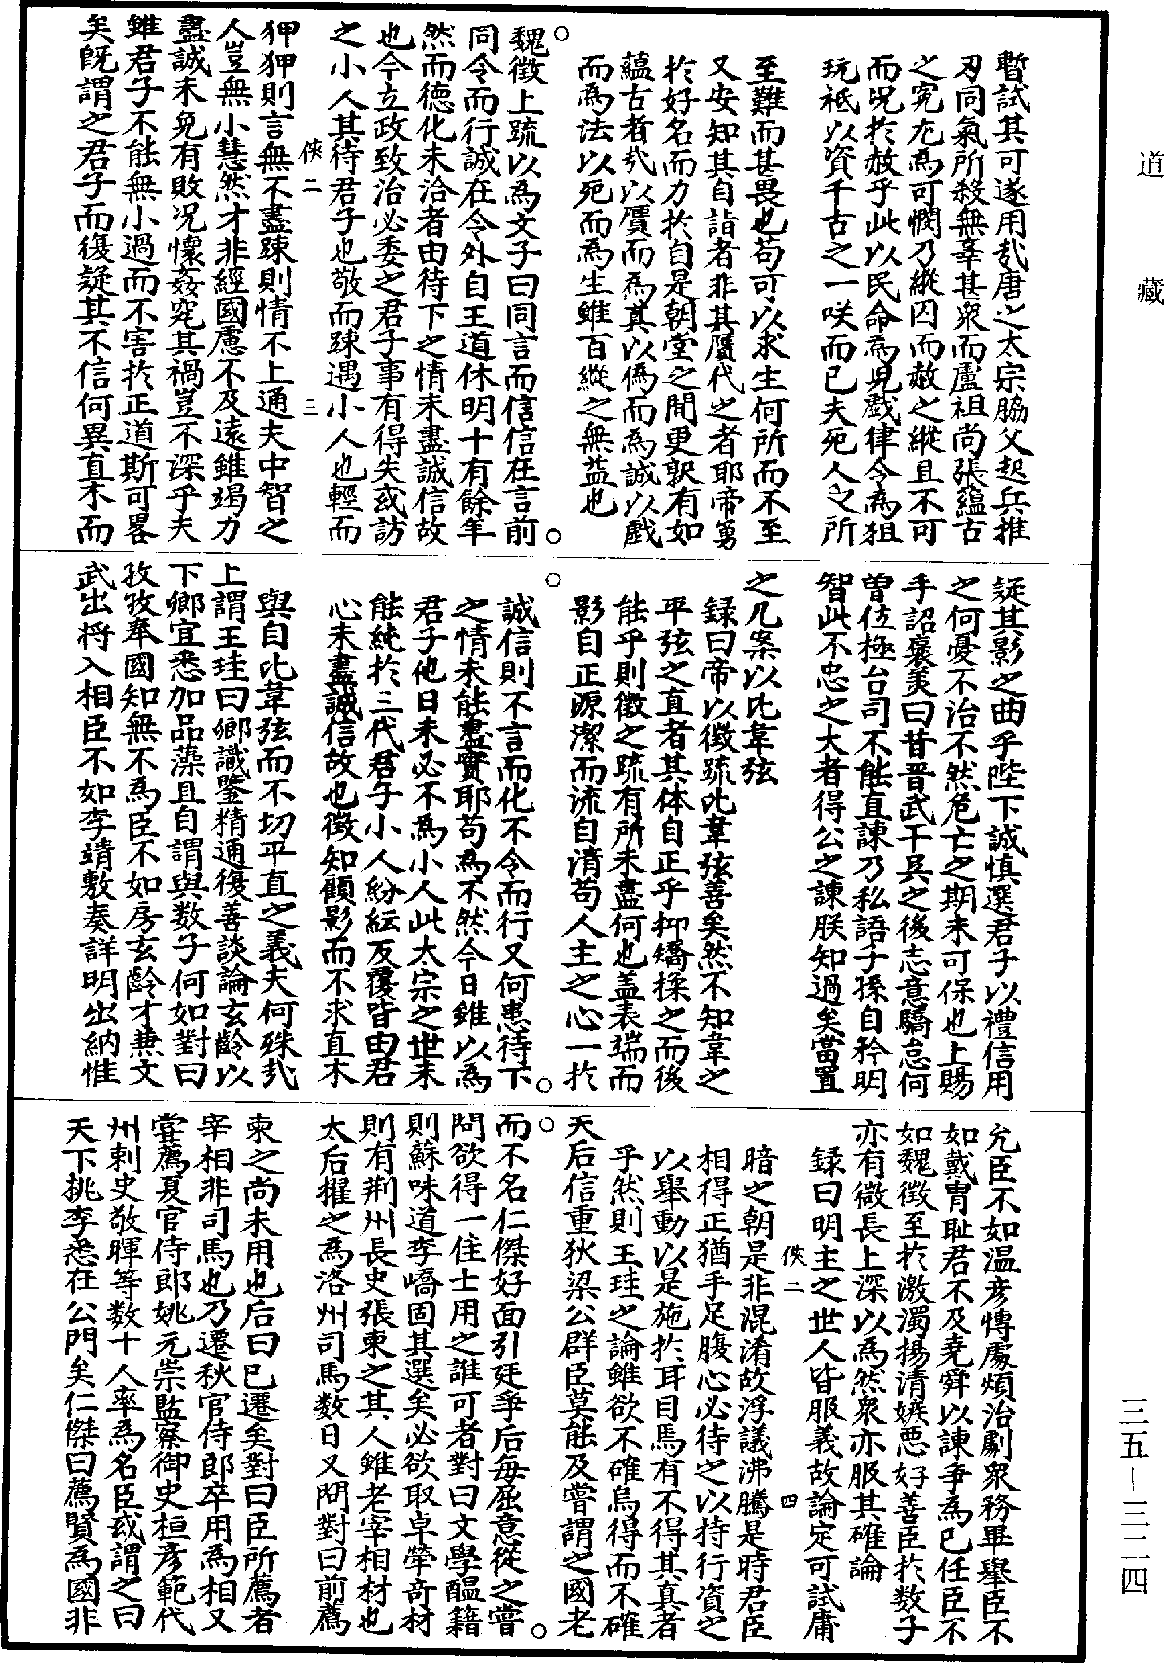 道藏
暫試其可遂用哉唐之太宗脇父起兵推
刃同氣所殺無辜甚衆而盧祖尚張蘊古
之寃尤為可憫乃縱囚而赦之縱且不可
而况於赦乎此以民命為兒戲律令為狙
玩祇以資千古之一咲而已夫死人之所
至難而甚畏也苟可以求生何所而不至
又安知其自詣者非其贋代之者耶帝勇
於好名而力於自是朝堂之間更訳有如
蘊古者哉以贋而為真以偽而為誠以戲
而為法以死而為生雖百縱之無益也
○魏徵上疏以為文子曰同言而信信在言前○
同令而行誠在令外自王道休明十有餘年
然而德化未洽者由待下之情未盡誠信故
也今立政致治必委之君子事有得失或訪
之小人其待君子也敬而踈遇小人也輕而
佚二 三
狎狎則言無不盡踈則情不上通夫中智之
人豈無小慧然才非經國慮不及遠雖竭力
盡誠未免有敗况懷姦宄其禍豈不深乎夫
雖君子不能無小過而不害於正道斯可畧
矣既謂之君子而復疑其不信何異直木而
疑其影之曲乎陛下誠慎選君子以禮信用
之何憂不治不然危亡之期未可保也上賜
手詔褒美曰昔晋武平吳之後志意驕怠何
曾位極台司不能直諫乃私語子孫自矜明
智此不忠之大者得公之諫朕知過矣當置
之几案以比韋弦
録曰帝以徵疏比韋弦善矣然不知韋之
平弦之直者其体自正乎抑矯揉之而後
能乎則徵之疏有所未盡何也盖表端而
影自正源潔而流自清苟人主之心一於
○誠信則不言而化不令而行又何患待下○
之情未能盡實耶苟為不然今日雖以為
君子他日未必不為小人此太宗之世未
能純於三代君子小人紛紜反覆皆由君
心未盡誠信故也徵知顧影而不求直木
與自比韋弦而不切平直之義夫何殊哉
上謂王珪曰卿識鑒精通復善談論玄齡以
下卿宜悉加品藻且自謂與数子何如對曰
孜孜奉國知無不為臣不如房玄齡才兼文
武出将入相臣不如李靖敷奏詳明出納惟
允臣不如温彦愽處煩治劇衆務畢舉臣不
如戴胄耻君不及堯舜以諫争為己任臣不
如魏徵至於激濁揚清嫉惡好善臣於数子
亦有微長上深以為然衆亦服其確論
録曰明主之世人皆服義故論定可試庸
佚二 四
暗之朝是非混淆故浮議沸騰是時君臣
相得正猶手足腹心必待之以持行資之
以舉動以是施於耳目焉有不得其真者
乎然則王珪之論雖欲不確烏得而不確
天后信重狄梁公群臣莫能及嘗謂之國老
○而不名仁傑好面引廷争后每屈意從之嘗○
問欲得一佳士用之誰可者對曰文學醖籍
則蘇味道李嶠固其選矣必欲取卓犖竒材
則有荆州長史張柬之其人雖老宰相材也
太后擢之為洛州司馬数日又問對曰前薦
柬之尚未用也后曰已遷矣對曰臣所薦者
宰相非司馬也乃遷秋官侍郎卒用為相又
嘗薦夏官侍郎姚元崇監察御史桓彦範代
州剌史敬暉等数十人率為名臣或謂之曰
天下桃李悉在公門矣仁傑曰薦賢為國非
三五-三二四